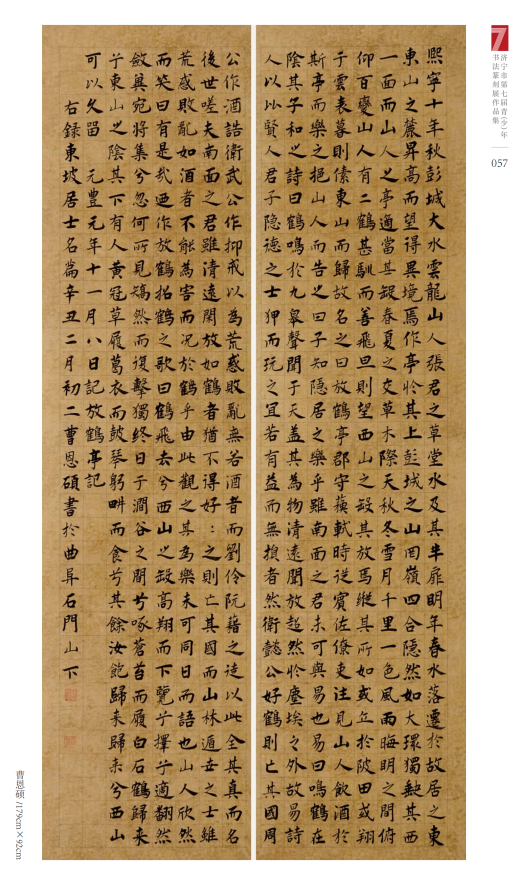 济宁市第七届青(少)年
书法篆刻展作品集
057
熙寧十年秋彭城大水雲龍山人張君之草堂水及其半扉明年春水落遷於故居之東
東山之麓昇高而望得異境焉作亭於其上彭城之山岡嶺四合隱然如大環獨缺其西
一面而山人之亭適當其缺春夏之交草木際天秋冬雪月千里一色風雨晦明之間俯
仰百變山人有二鶴甚馴而善飛旦則望西山之缺其放焉縱其所如或立於陂田或翔
于雲表暮則傃東山而歸故名之曰放鶴亭郡守蘇軾時從賓佐僚吏往見山人飲酒於
斯亭而樂之挹山人而告之曰子知隱居之樂乎雖南面之君未可與易也易曰鳴鶴在
陰其子和之詩曰鶴鳴於九皋聲聞于天蓋其為物清遠閒放超然於塵埃之外故易詩
人以比賢人君子隱德之士狎而玩之宜若有益而無損者然衛懿公好鶴則亡其國周
公作酒誥衛武公作抑戒以為荒惑敗亂無若酒者而劉伶阮藉之徒以此全其真而名
後世嗟夫南面之君雖清遠閑放如鶴者猶不得好：之則亡其國而山林遁世之士雖
荒惑敗亂如酒者不能為害而況於鶴乎由此觀之其為樂未可同日而語也山人欣然
而笑曰有是哉迺作放鶴招鶴之歌曰鶴飛去兮西山之缺高翔而下覽兮擇乎適翻然
斂翼宛將集兮忽何所見矯然而復擊獨終日于澗谷之間兮啄蒼苔而履白石鶴歸來
兮東山之陰其下有人黃冠草履葛衣而鼓琴躬畊而食兮其餘汝飽歸來歸來兮西山
可以久留 元豐元年十一月八日記放鶴亭記
右錄東坡居士名篇辛丑二月初二曹恩碩書於曲阜石門山下
曹恩硕/179cm×92cm